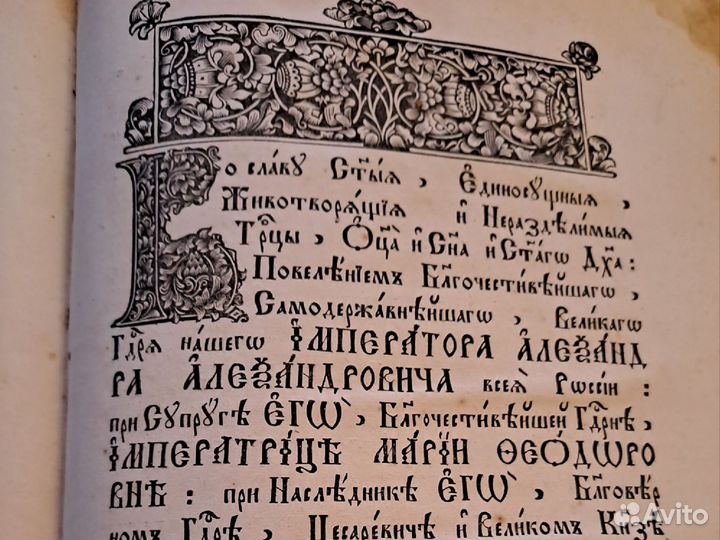 Во сла́ву Ст҃ы́ѧ, Є҆динос́ꙋщныѧ,
Животворѧ́щїѧ и҆ Нераздѣ́лимыѧ
Тр҃цы, Ѻ҆ц҃а̀ и҆ Сн҃а и҆ Ст҃а́гѡ Дх҃а:
Повелѣ́нїемъ Бл҃гочести́вѣйшагѡ,
Самодержа́внѣйшагѡ, Вели́кагѡ
Гдⷭ҇рѧ на́шегѡ І҆МПЕРА́ТОРА А҆ЛЕѮА́НД
РА А҆ЛЕѮА́НДРОВИЧА всеѧ̀ Рѡссі́и:
при Сꙋпрꙋ́гѣ Є҆ГѠ̀, Бл҃гочести́вѣйшей Гдⷭ҇рнѣ,
І҆МПЕРАТРИ́ЦѢ МАРІ́И ѲЕО́ДѠРО
ВНѢ: при Наслѣ́дникѣ Є҆ГѠ̀, Бл҃говѣ́р
номъ Гдⷭ҇рѣ, Цесаре́вичѣ и҆ Вели́комъ Кнѧ́зѣ
Avito